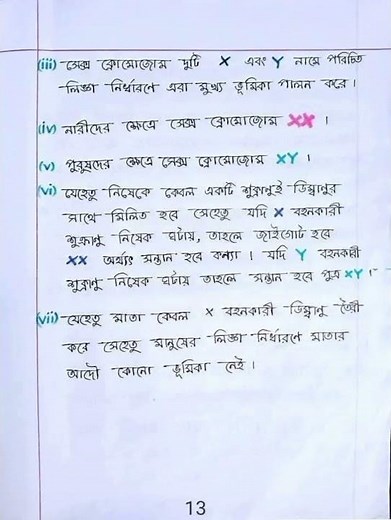 (iii) সেক্স ক্রোমোজোম দুটি X এবং Y নামে পরিচিত
লিঙ্গ নির্ধারণে এরা মুখ্য ভূমিকা পালন করে।
(iv) নারীদের ক্ষেত্রে সেক্স ক্রোমোজোম XX ।
(v) পুরুষদের ক্ষেত্রে সেক্স ক্রোমোজোম XY ।
(vi) যেহেতু নিষেকে কেবল একটি শুক্রাণুই ডিম্বাণুর
সাথে মিলিত হবে সেহেতু যদি X বহনকারী
শুক্রাণু নিষেক ঘটায়, তাহলে জাইগোট হবে
XX অর্থাৎ সন্তান হবে কন্যা। যদি Y বহনকারী
শুক্রাণু নিষেক ঘটায় তাহলে সন্তান হবে পুত্র XY ।
(vii) যেহেতু মাতা কেবল X বহনকারী ডিম্বাণু তৈরী
করে সেহেতু মানুষের লিঙ্গ নির্ধারণে মাতার
আদৌ কোনো ভূমিকা নেই।
13